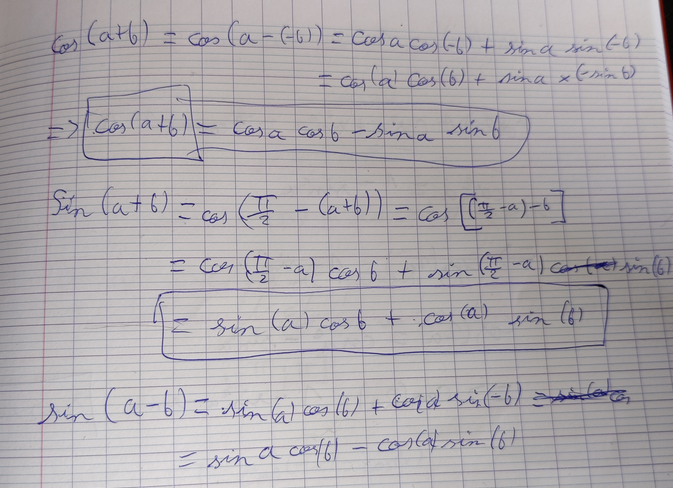 cos(a+b) = cos(a-(-b)) = cosa cos(-b) + sina sin(-b)
= cos(a) cos(b) + sina × (-sinb)
=> cos(a+b) = cosa cosb - sina sinb
Sin(a+b) = cos(π/2 - (a+b)) = cos[(π/2 - a) - b]
= cos(π/2 - a) cosb + sin(π/2 - a) sin(b)
= sin(a) cosb + cos(a) sin(b)
sin(a-b) = sin(a) cos(b) + cos(a) sin(-b)
= sin a cos(b) - cos(a) sin(b)